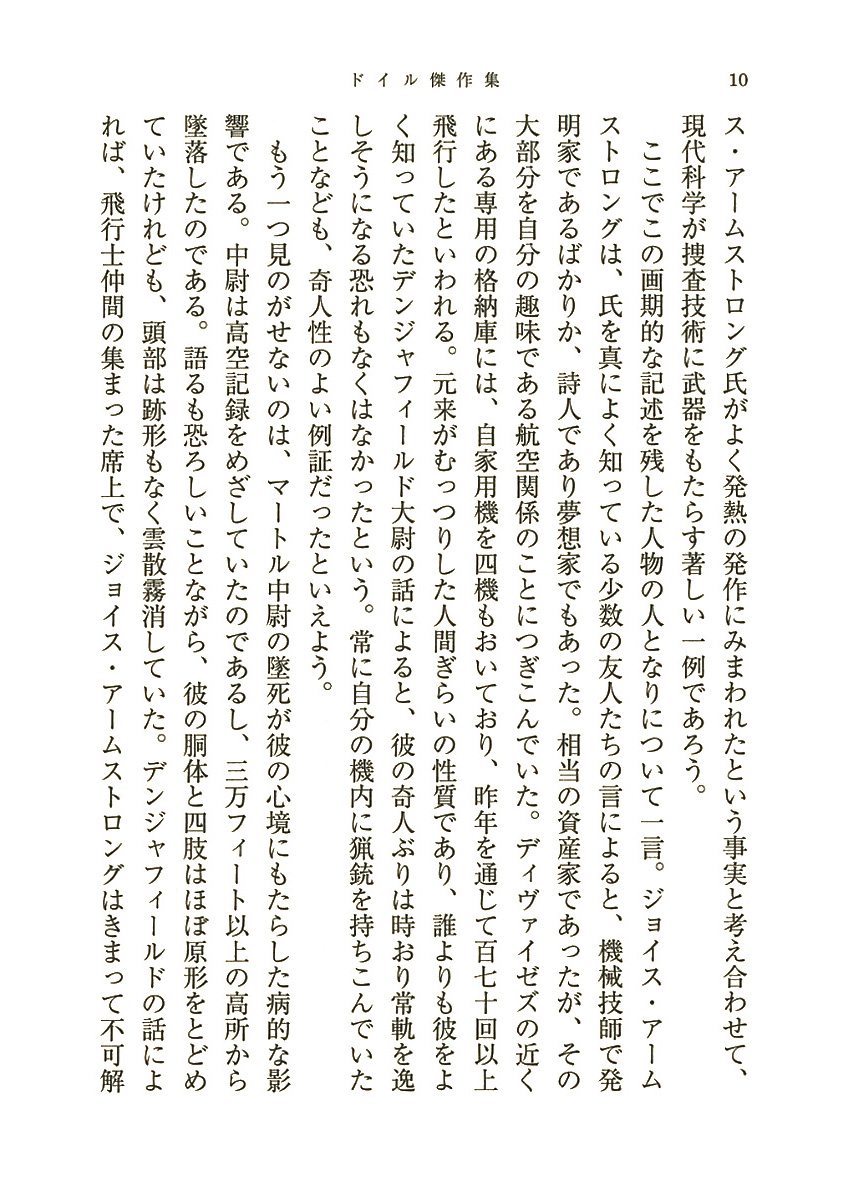 ドイル傑作集
10
ス・アームストロング氏がよく発熱の発作にみまわれたという事実と考え合わせて、
現代科学が捜査技術に武器をもたらす著しい一例であろう。
ここでこの画期的な記述を残した人物の人となりについて一言。ジョイス・アーム
ストロングは、氏を真によく知っている少数の友人たちの言によると、機械技師で発
明家であるばかりか、詩人であり夢想家でもあった。相当の資産家であったが、その
大部分を自分の趣味である航空関係のことにつぎこんでいた。ディヴァイゼズの近く
にある専用の格納庫には、自家用機を四機もおいており、昨年を通じて百七十回以上
飛行したといわれる。元来がむっつりした人間ぎらいの性質であり、誰よりも彼をよ
く知っていたデンジャフィールド大尉の話によると、彼の奇人ぶりは時おり常軌を逸
しそうになる恐れもなくはなかったという。常に自分の機内に猟銃を持ちこんでいた
ことなども、奇人性のよい例証だったといえよう。
もう一つ見のがせないのは、マートル中尉の墜死が彼の心境にもたらした病的な影
響である。中尉は高空記録をめざしていたのであるし、三万フィート以上の高所から
墜落したのである。語るも恐ろしいことながら、彼の胴体と四肢はほぼ原形をとどめ
ていたけれども、頭部は跡形もなく雲散霧消していた。デンジャフィールドの話によ
れば、飛行士仲間の集まった席上で、ジョイス・アームストロングはきまって不可解